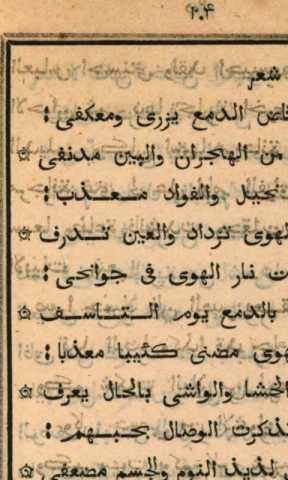 ٢٠٤
شعر
الدمع يزرى ومعكفى :
من الهجران والبين مدنفى ۞
نحيل والفواد معذب :
لهوى ترداد والعين تذرف ۞
نار الهوى فى جوانحى :
بالدمع يوم التاسف ۞
مضنى كئيبا معذبا :
الحشا والواشى بالحال يعرف ۞
تذكرت الوصال بحبهم :
لذيذ النوم والجسم مصعفى ۞